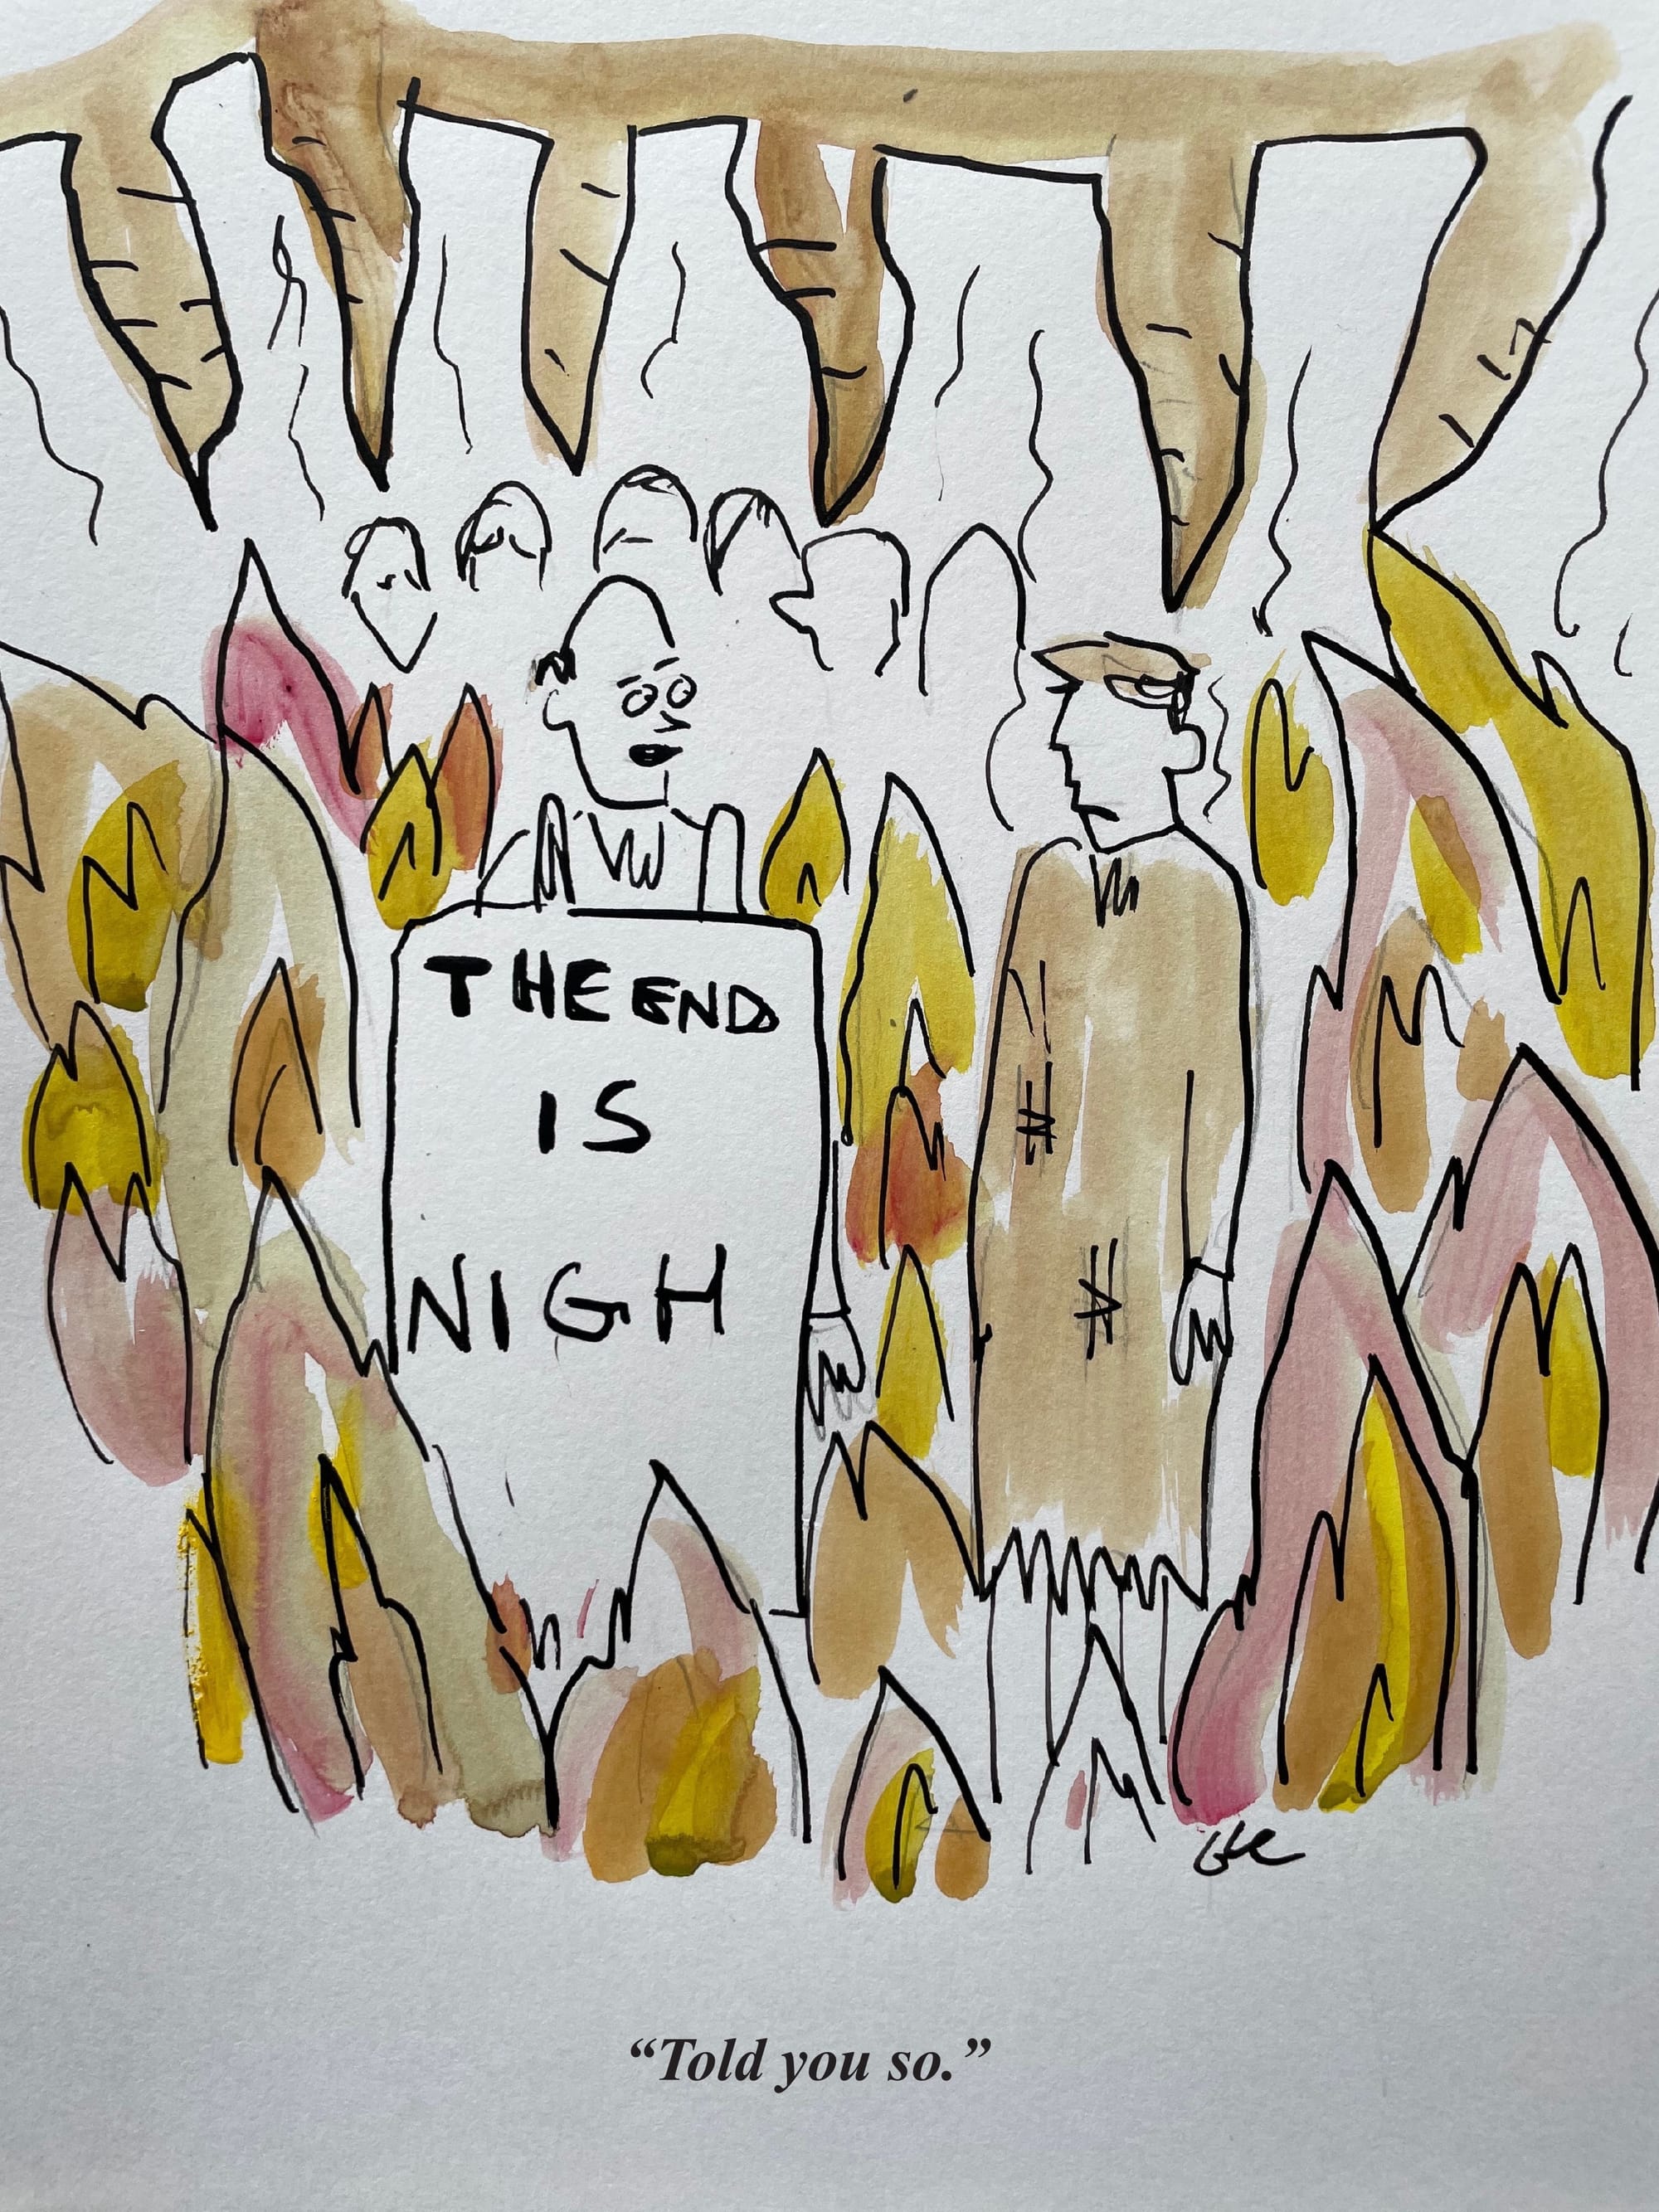 THE END
IS
NIGH
“Told you so.”